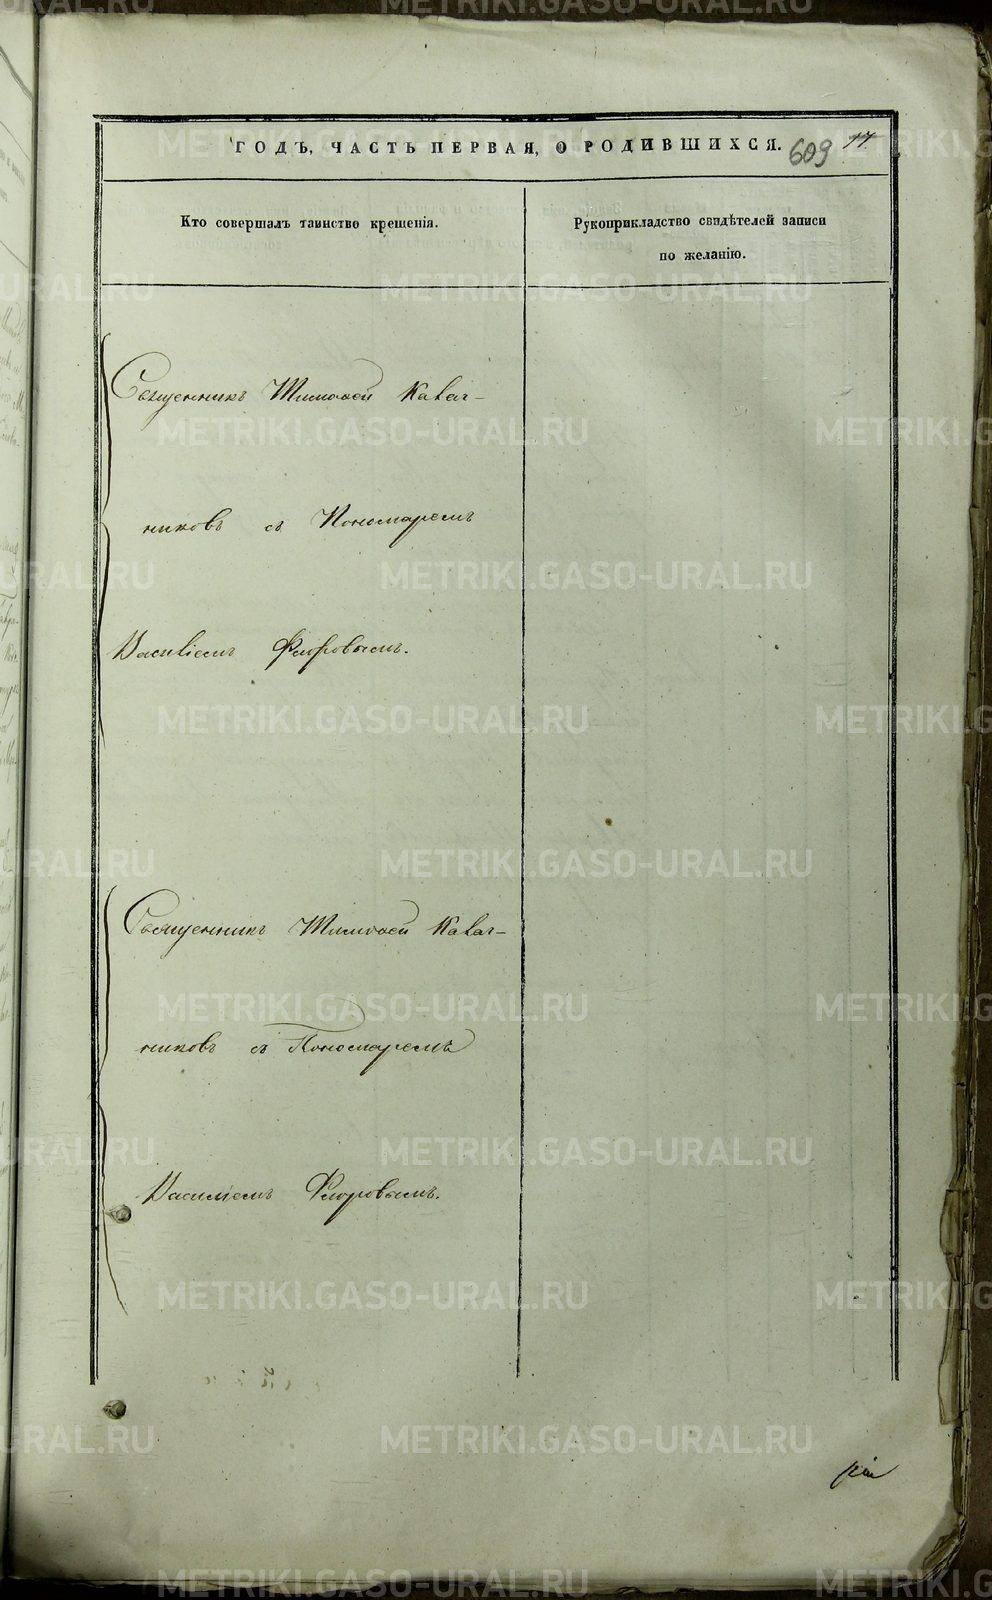 ГОДЪ, ЧАСТЬ ПЕРВАЯ, О РОДИВШИХСЯ. 609 17
Кто совершалъ таинство крещенія.
Рукоприкладство свидѣтелей записи
по желанію.
Священникъ Тимоѳей Кавар-
никовъ съ Пономаремъ
Василіемъ Флоровымъ.
Священникъ Тимоѳей Кавар-
никовъ съ Пономаремъ
Василіемъ Флоровымъ.
METRIKI.GASO-URAL.RU